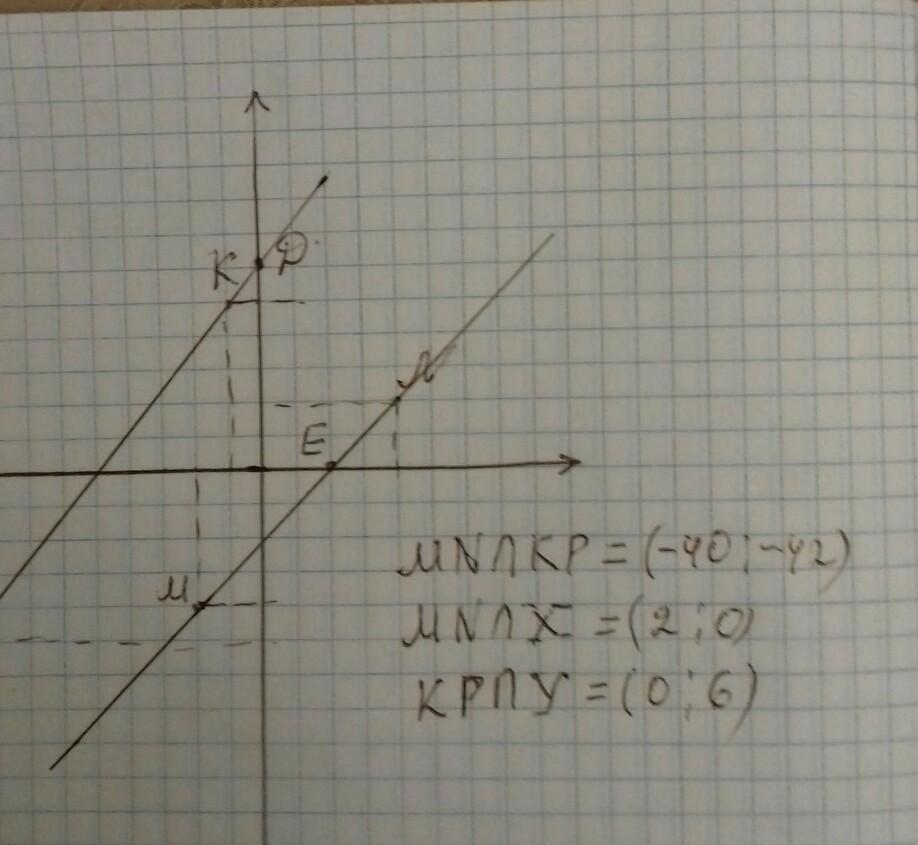 K Д
N
E
M
MN∩KP=(-40;-42)
MN∩X=(2;0)
KP∩У=(0;6)